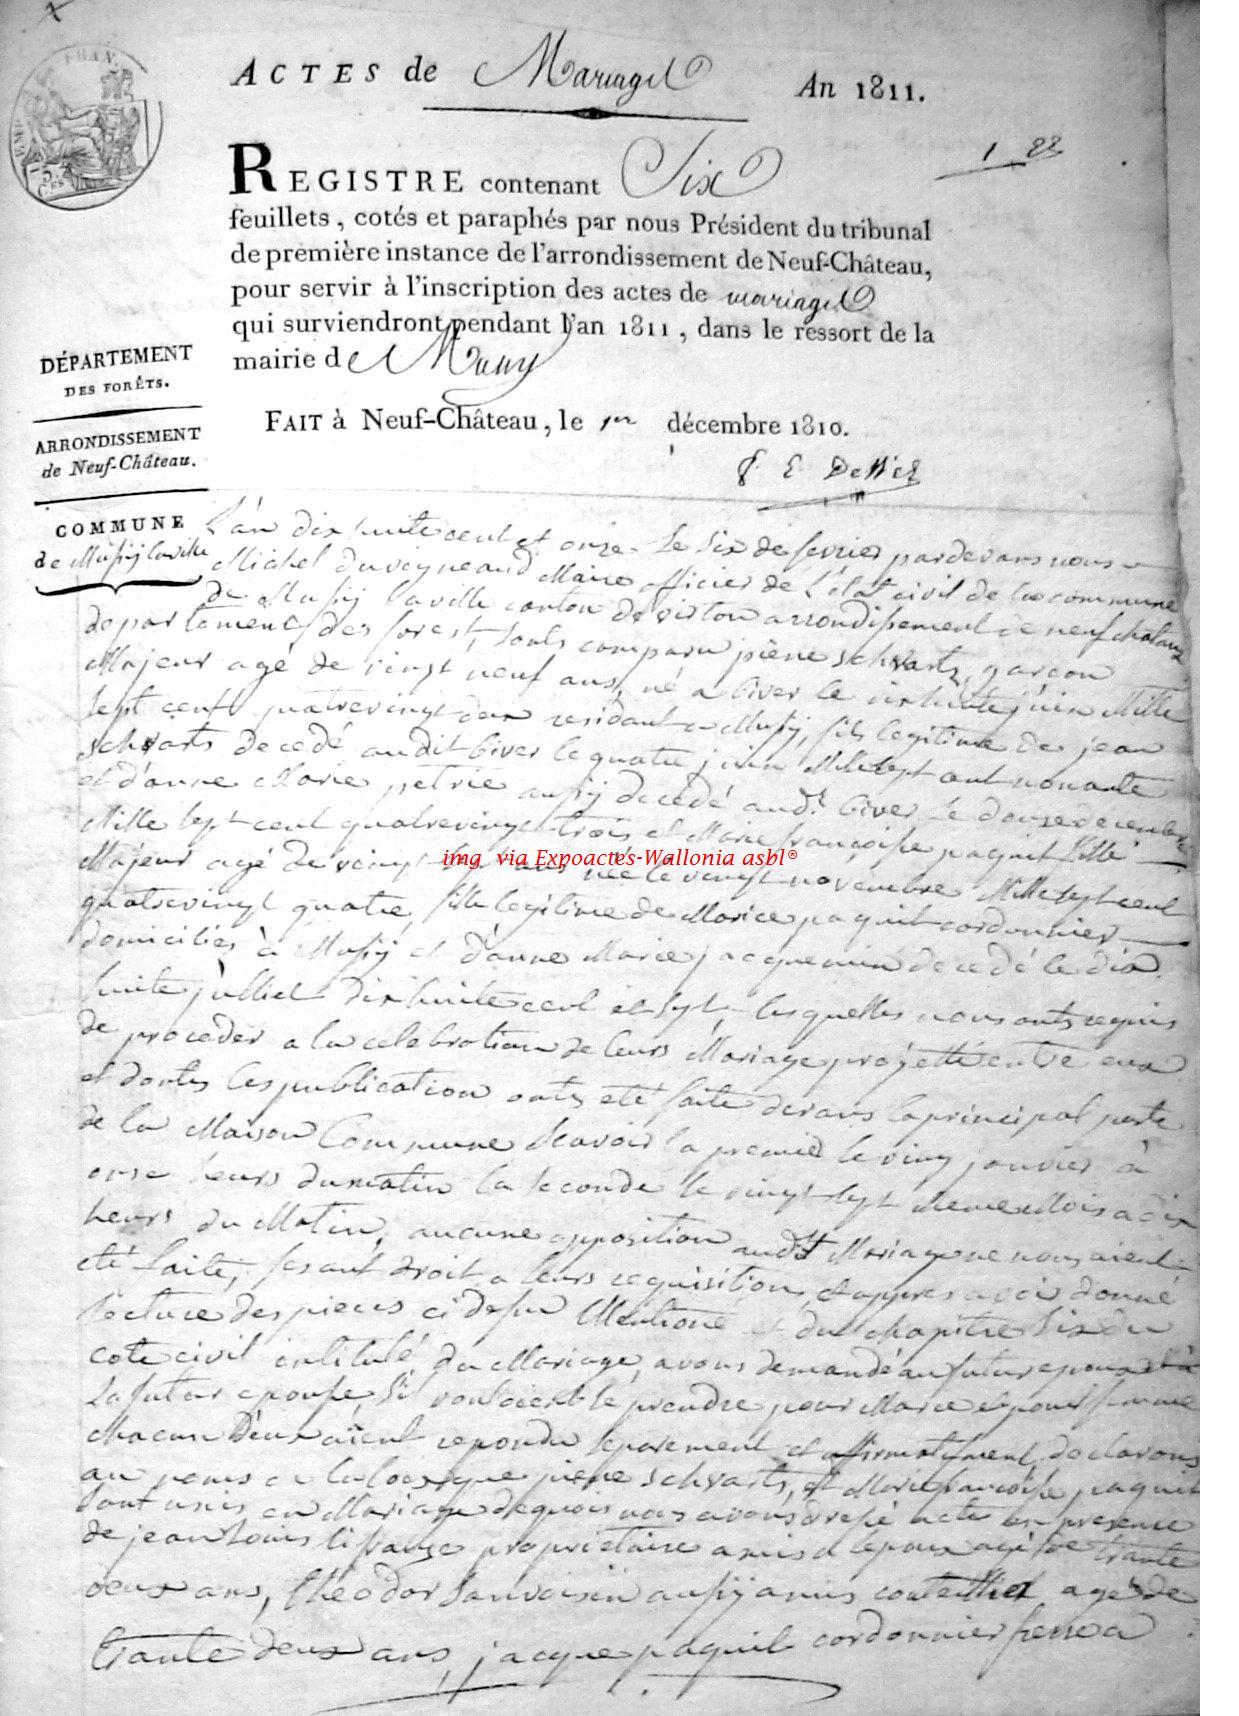 ACTES de Mariage An 1811.
1 22
REGISTRE contenant Six
feuillets, cotés et paraphés par nous Président du tribunal
de première instance de l'arrondissement de Neuf-Château,
pour servir à l'inscription des actes de mariage
qui surviendront pendant l'an 1811, dans le ressort de la
mairie de Mussy
DÉPARTEMENT
DES FORÊTS.
FAIT à Neuf-Château, le 1er décembre 1810.
ARRONDISSEMENT
de Neuf-Château.
COMMUNE
de Mussy laville
FRAN.
EMP.
5.
C.ES
L'an dix huite cent et onze le six de fevrier pardevans nous
Michel Duvigneaud Maire officier de L'état civil de la commune
de Mussy laville canton de virton arrondissement de neufchateaux
departement des forest, sonts comparu pierre schvarts, garcon
Majeur agé de vingt neuf ans, né a biver le dixhuite juin Mille
sept cent quatrevingt deux residant a Mussy, fils legitime de jean
schvarts decedé audit biver le quatre juin Mille sept cent nonante
et d'anne Marie petrie aussy decedé audt biver le douze decembre
Mille sept cent quatrevingt trois et Marie françoise paquit fille
Majeur agé de vingt six ans née le vingt novembre Mille sept cent
quatrevingt quatre, fille legitime de Marice paquit cordonnier
domiciliés à Mussy et d'anne Marie jacquemin decedé le dix
huite julliet dix huite cent et sept, lesquelles nous onts requis
de proceder a la celebration de leurs Mariage projetté entre eux
et donts les publication onts eté faite devans la principal porte
de la Maison Commune scavoir la premie le ving janvier à
onse heurs du matin la seconde le vingt sept meme Mois a dix
heurs du Matin, aucune opposition audit Mariage ne nous aient
eté faite, fesant droit a leurs requisition et appres avoir donné
lecture des pieces ci dessu Mentioné et du chapitre six du
cote civil intitulé du Mariage, avons demandé au futur epoux et à
La futur epouse, s'il vouloient le prendre pour Marie et pour femme
chacun d'eux aient repondu separement et affirmativement, declarons
au noms de la loi que pierre schvarts, et Marie françoise paquit
sont unis en Mariage de quois nous avons dressé acte en presence
de jean Louis proprietaire amis a l'epoux agé de trante
deux ans, théodor Sauvoisin aussÿ amis agé de
trante deux ans, jacque paquit cordonnier frere a
img via Expoactes-Wallonia asbl®